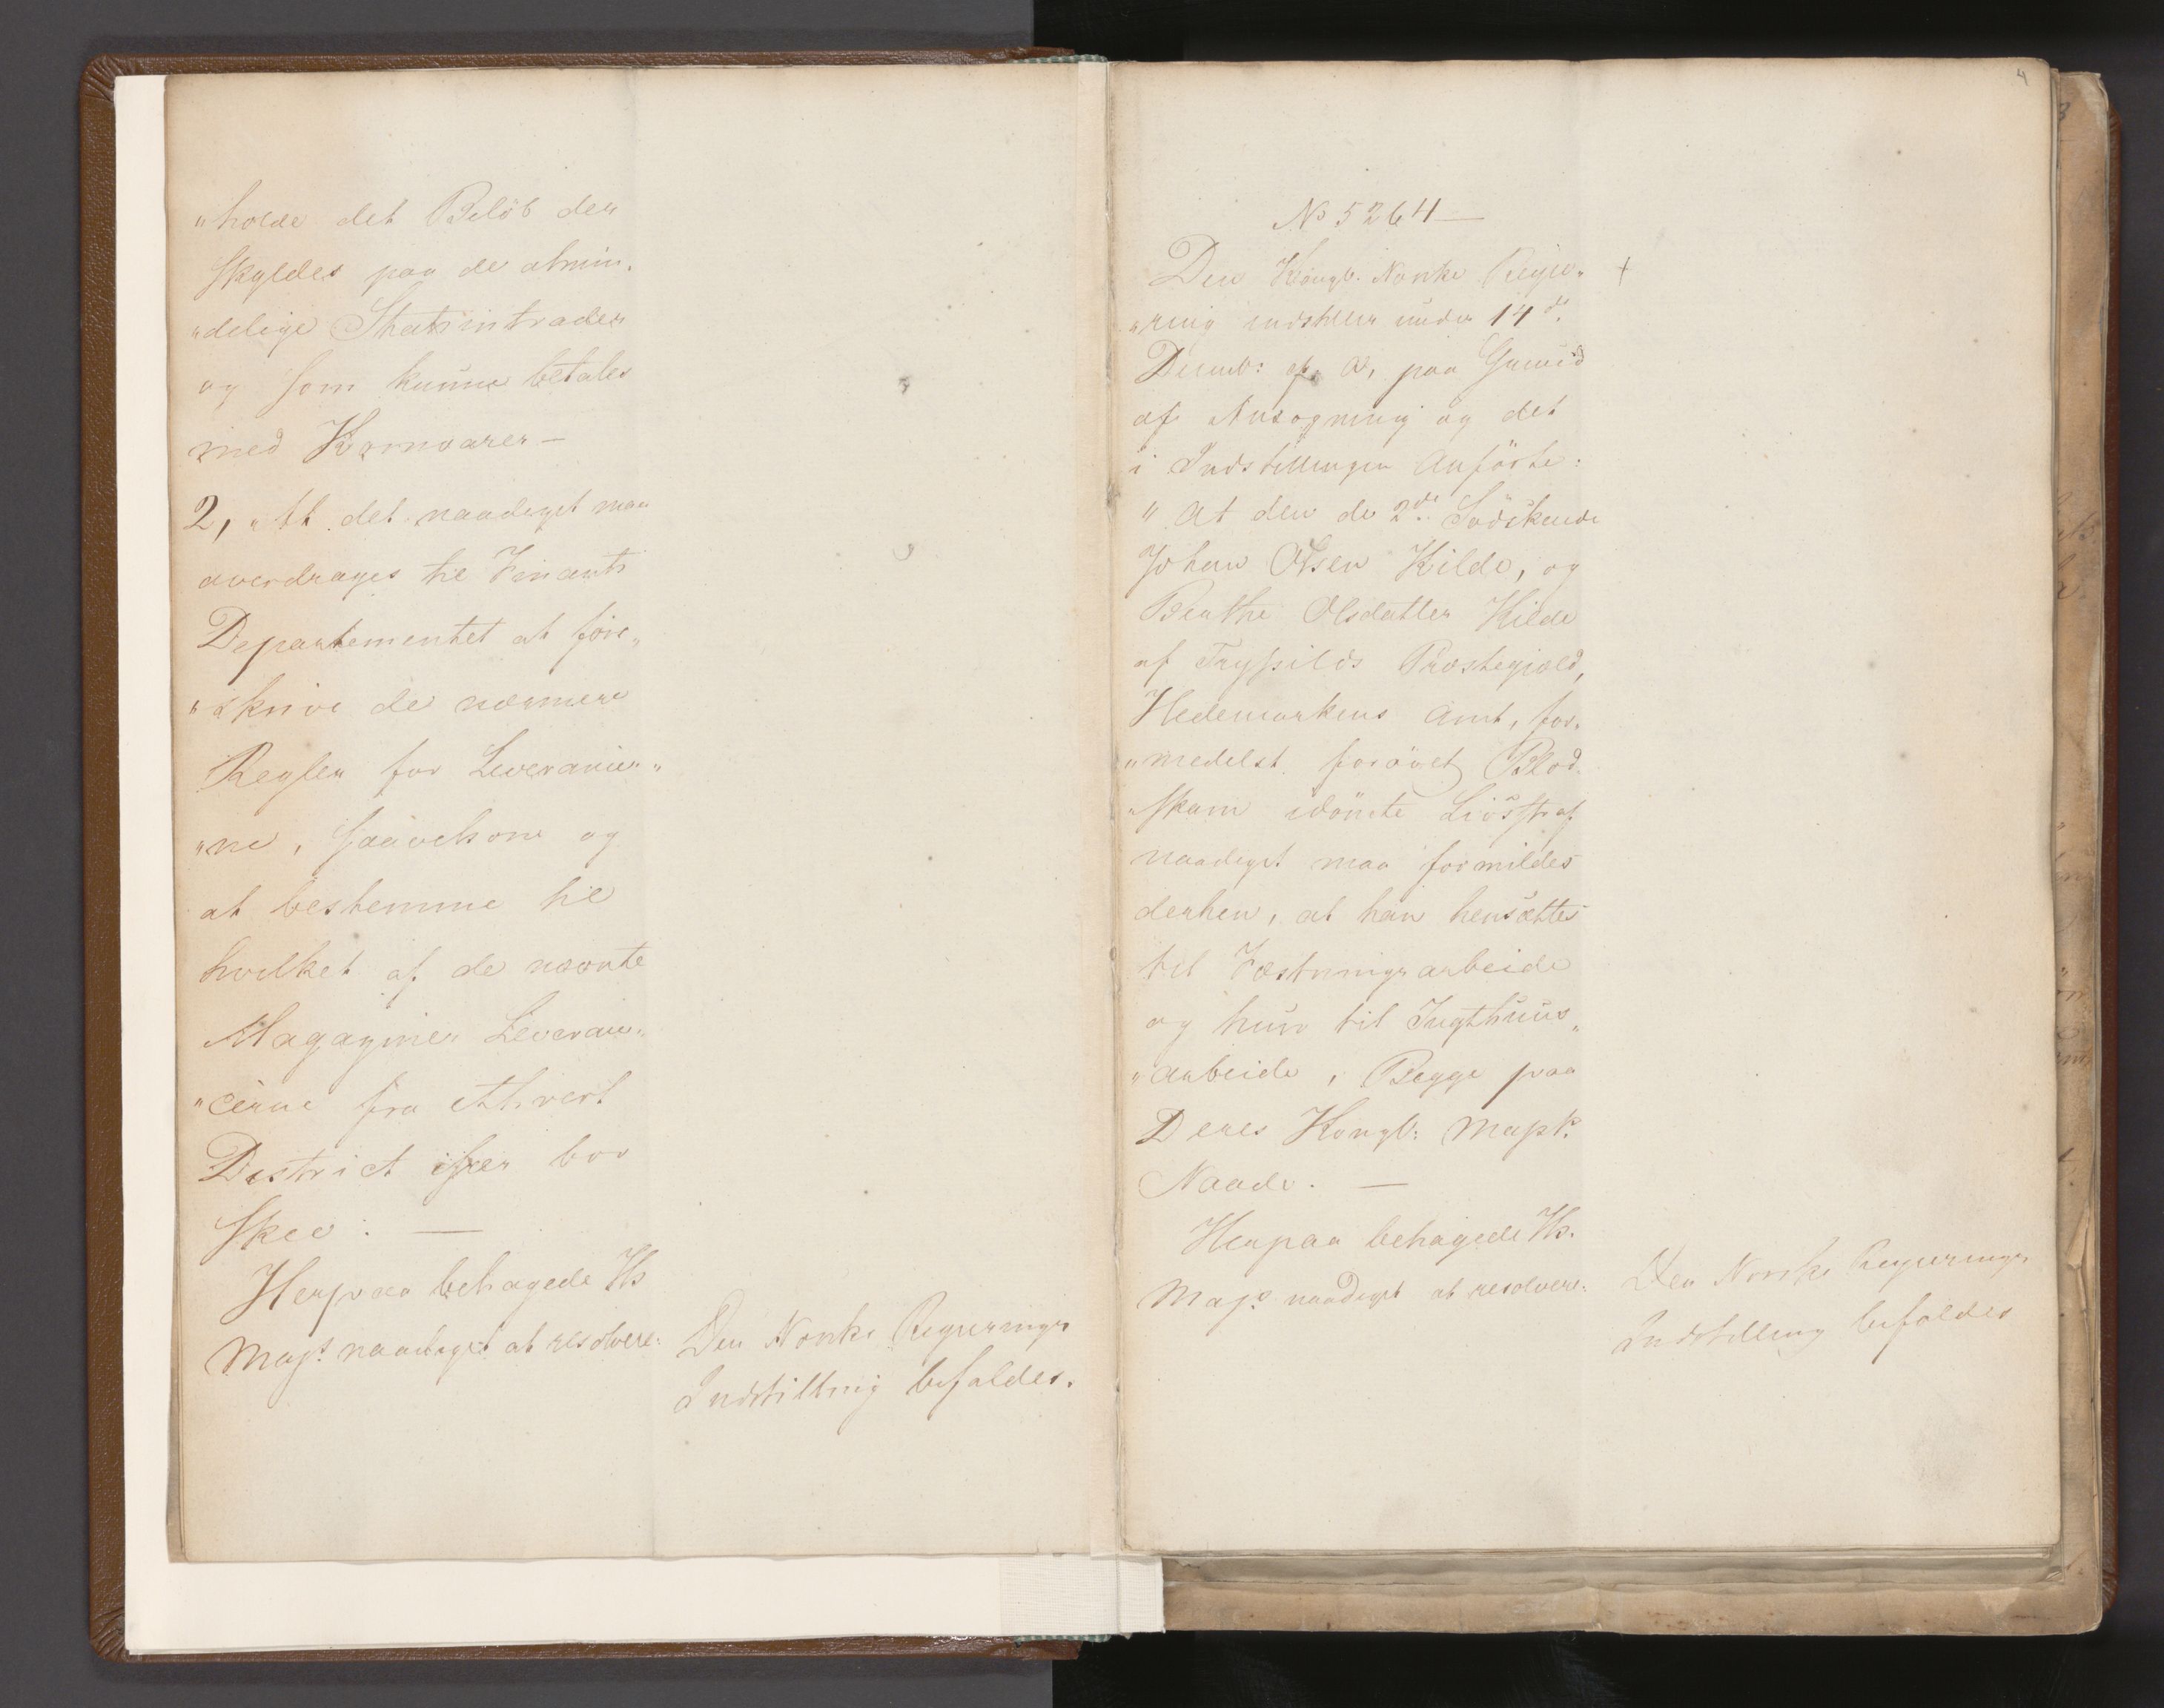 "holde det Beløb der
skyldes paa de almin,
"delige Statsintrader
og som kunne betales
med Kornvarer —
2, "At det naadigst maa
overdrages til Finants
Departementet at fore„
"skrive de nærmere
Regler for Leverancer„
"ne, saavelsom og
at bestemme til
hvilket af de nævnte
Magaziner Leveran„
"cerne fra ethvert
District især bør
skee. —
Herpaa behagede Hs
Majt naadigst at resolvere:
Den Norske Regierings
Indstilling bifaldes.
4
No 5264 —
Den Kongl. Norske Regie„ +
"ring indstiller under 14de
Decemb: af. A, paa Grund
af Ansøgning og det
i Indstillingen Anførte:
"At den de 2de Sødskende
Johan Olsen Kilde, og
Berthe Olsdatter Kilde
af Trysilds Præstegield,
Hedemarkens Amt, for„
"medelst forøvet Blod„
"skam idømte Livsstraf
naadigst maa formildes
derhen, at han hensættes
til Fæstningsarbeide
og hun til Tugthuus„
"arbeide, Begge paa
Deres Kongl: Majts
Naade. —
Herpaa behagede Hs.
Majt naadigst at resolvere:
Den Norske Regierings
Indstilling bifaldes